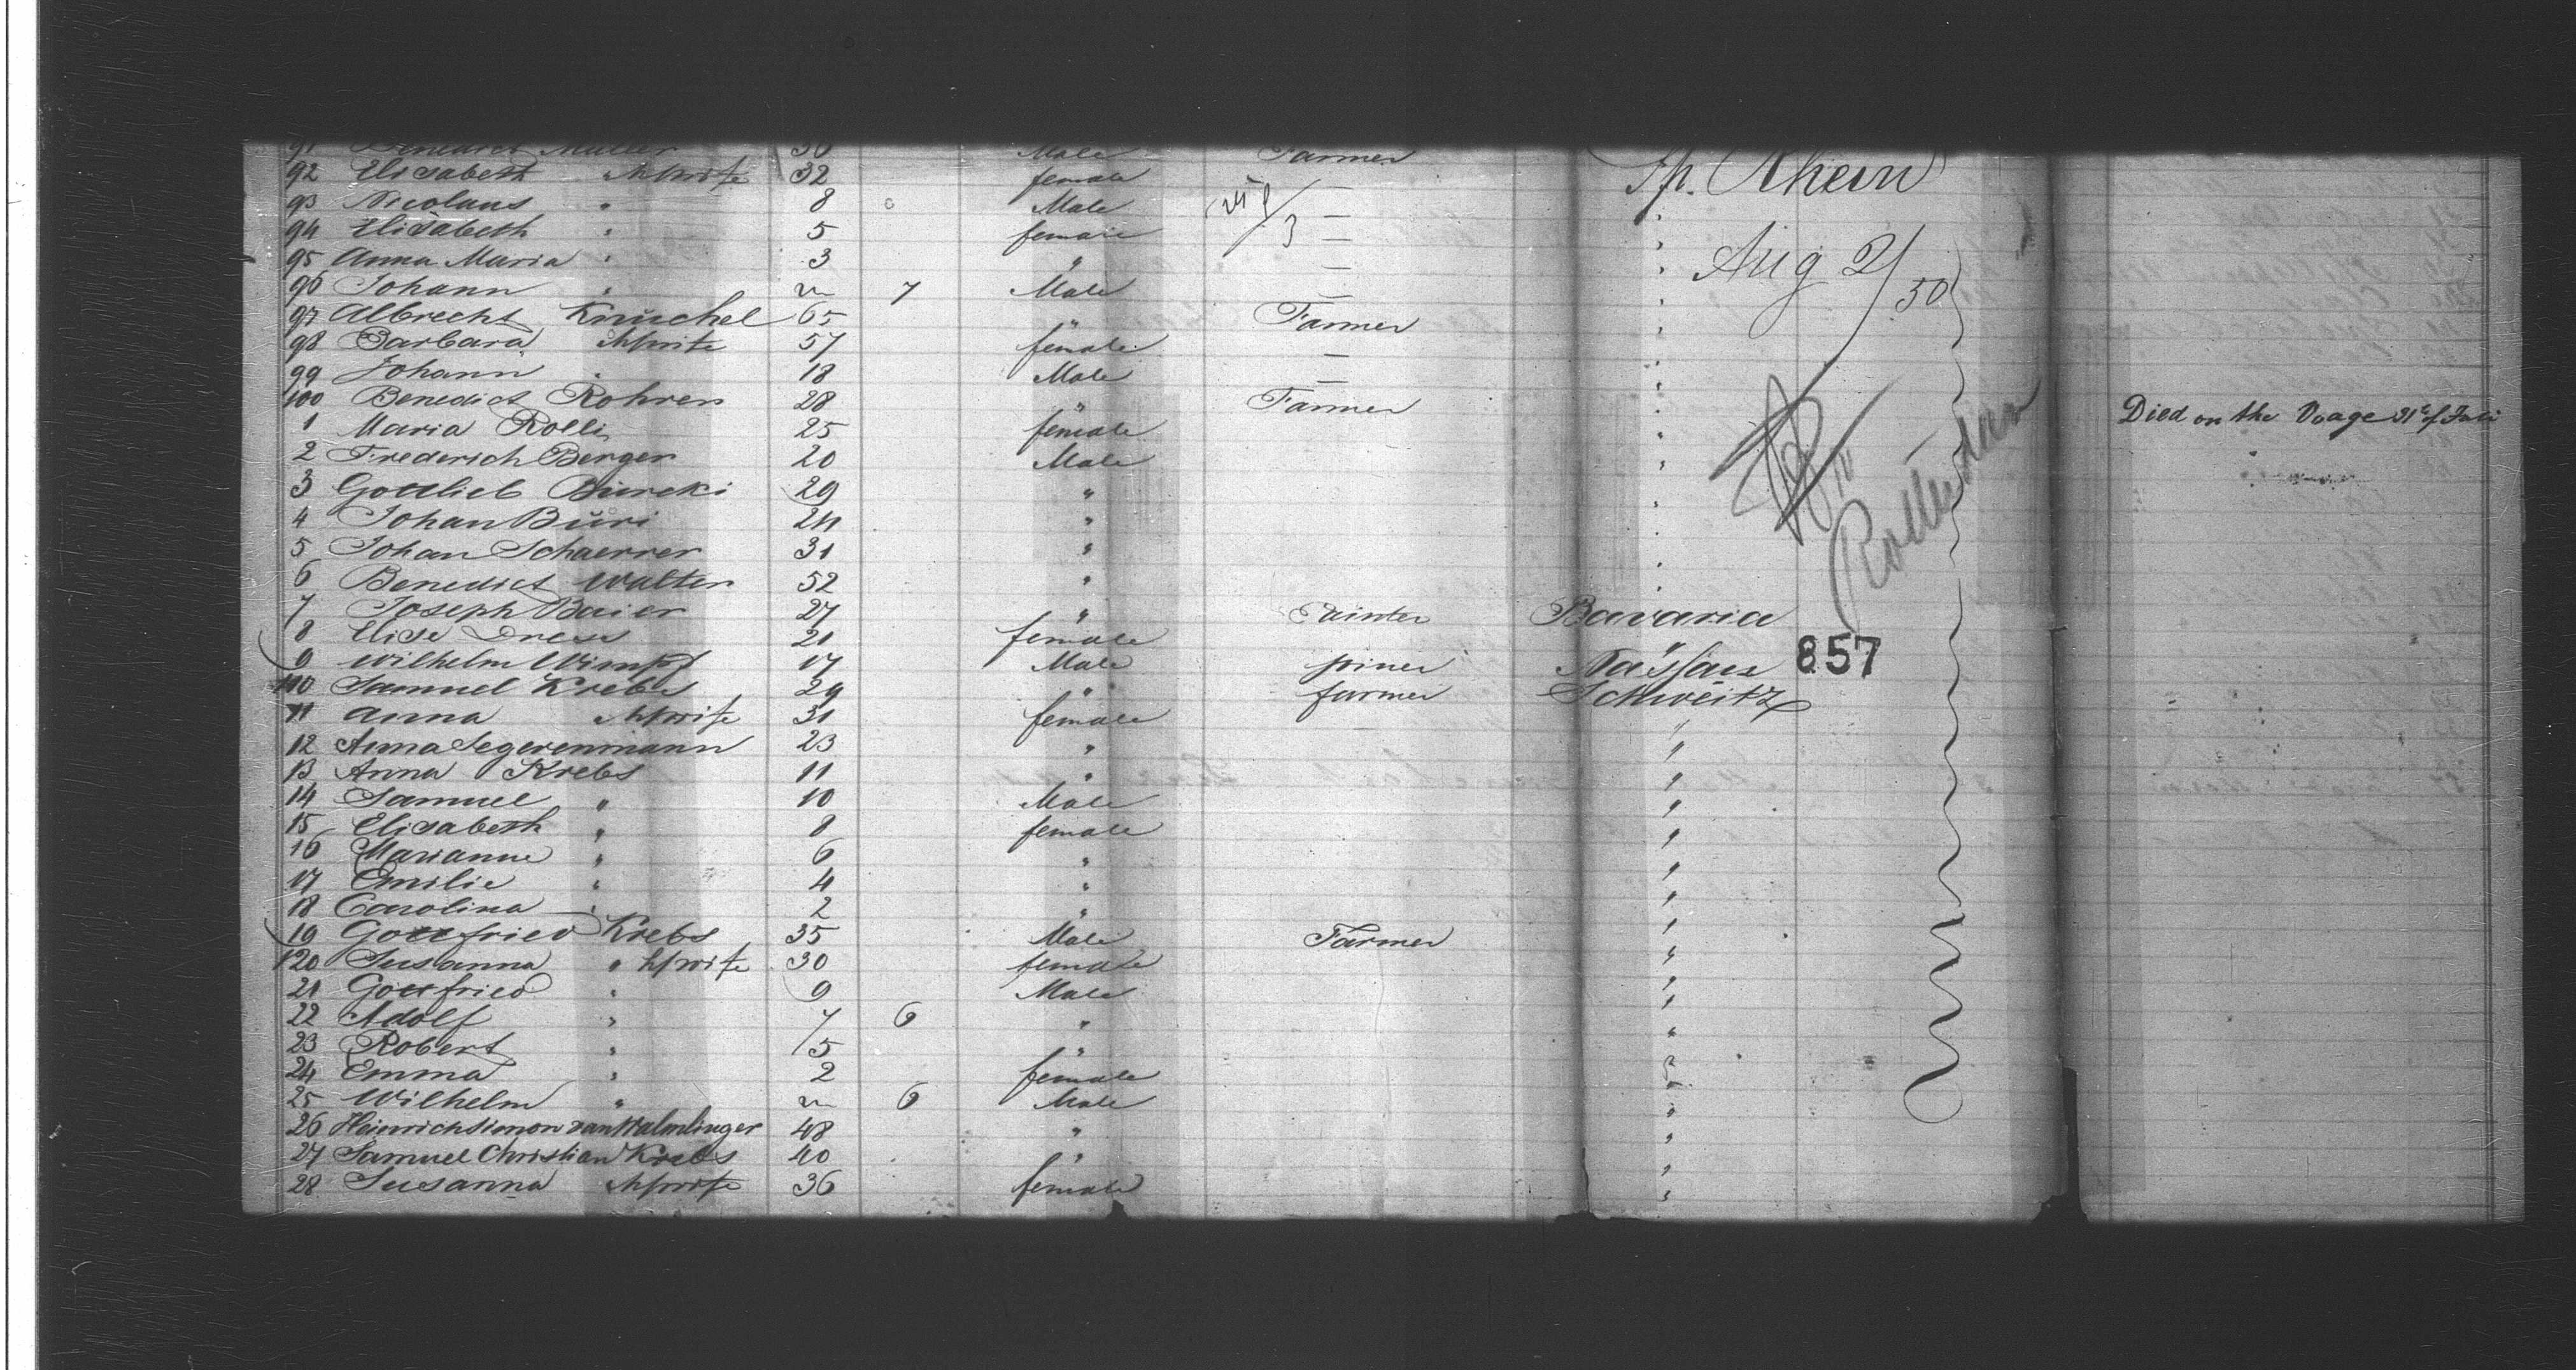 91 Benedict Müller 30 Male Farmer
92 Elisabeth " wife 32 female —
93 Nicolaus " 8 Male —
94 Elisabeth " 5 female —
95 Anna Maria " 3 " —
96 Johann " 7 Male —
97 Albrecht Knuchel 65 " Farmer
98 Barbara wife 57 female —
99 Johann " 18 Male —
100 Benedict Rohrer 28 " Farmer
1 Maria Rolli 25 female " Died on the Voage 31 of Juli
2 Frederich Berger 20 Male "
3 Gottlieb Bürcki 29 " "
4 Johan Büri 24 " "
5 Johan Schaerrer 31 " "
6 Benedict Walter 52 " "
7 Joseph Baier 27 " Painter Bavaria
8 Elise 21 female "
9 Wilhelm Wimpf 17 Male joiner Nassau
110 Samuel Krebs 29 " farmer Schweitz
11 Anna wife 31 female "
12 Anna Segerenmann 23 " "
13 Anna Krebs 11 " "
14 Samuel " 10 Male "
15 Elisabeth " 8 female "
16 Marianne " 6 " "
17 Emilie " 4 " "
18 Carolina " 2 " "
19 Gottfried Krebs 35 Male Farmer "
120 Susanna " wife 30 female "
21 Gottfried " 9 Male "
22 Adolf " 7 6 " "
23 Robert " 5 " "
24 Emma " 2 female "
25 Wilhelm " 6 Male "
26 Heinrich Simon van Walmlinger 48 " "
27 Samuel Christian Krebs 40 " "
28 Susanna wife 36 female "
Sp. Rhein
Aug 2/50
857